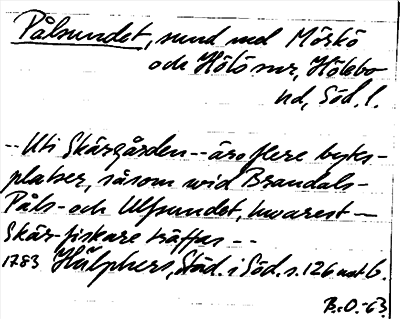 Pålsundet, sund med Mörkö
och Hölö snr, Hölebo
hd, Söd. l.
-- Uti Skärgården -- äro flere bytes-
platser, såsom wid Brandals-
Påls- och Ulfsundet, hwarest —
Skär-fiskare träffas --
1783 Hülphers, Städ. i Söd. s. 126 not b.
B.O.-63